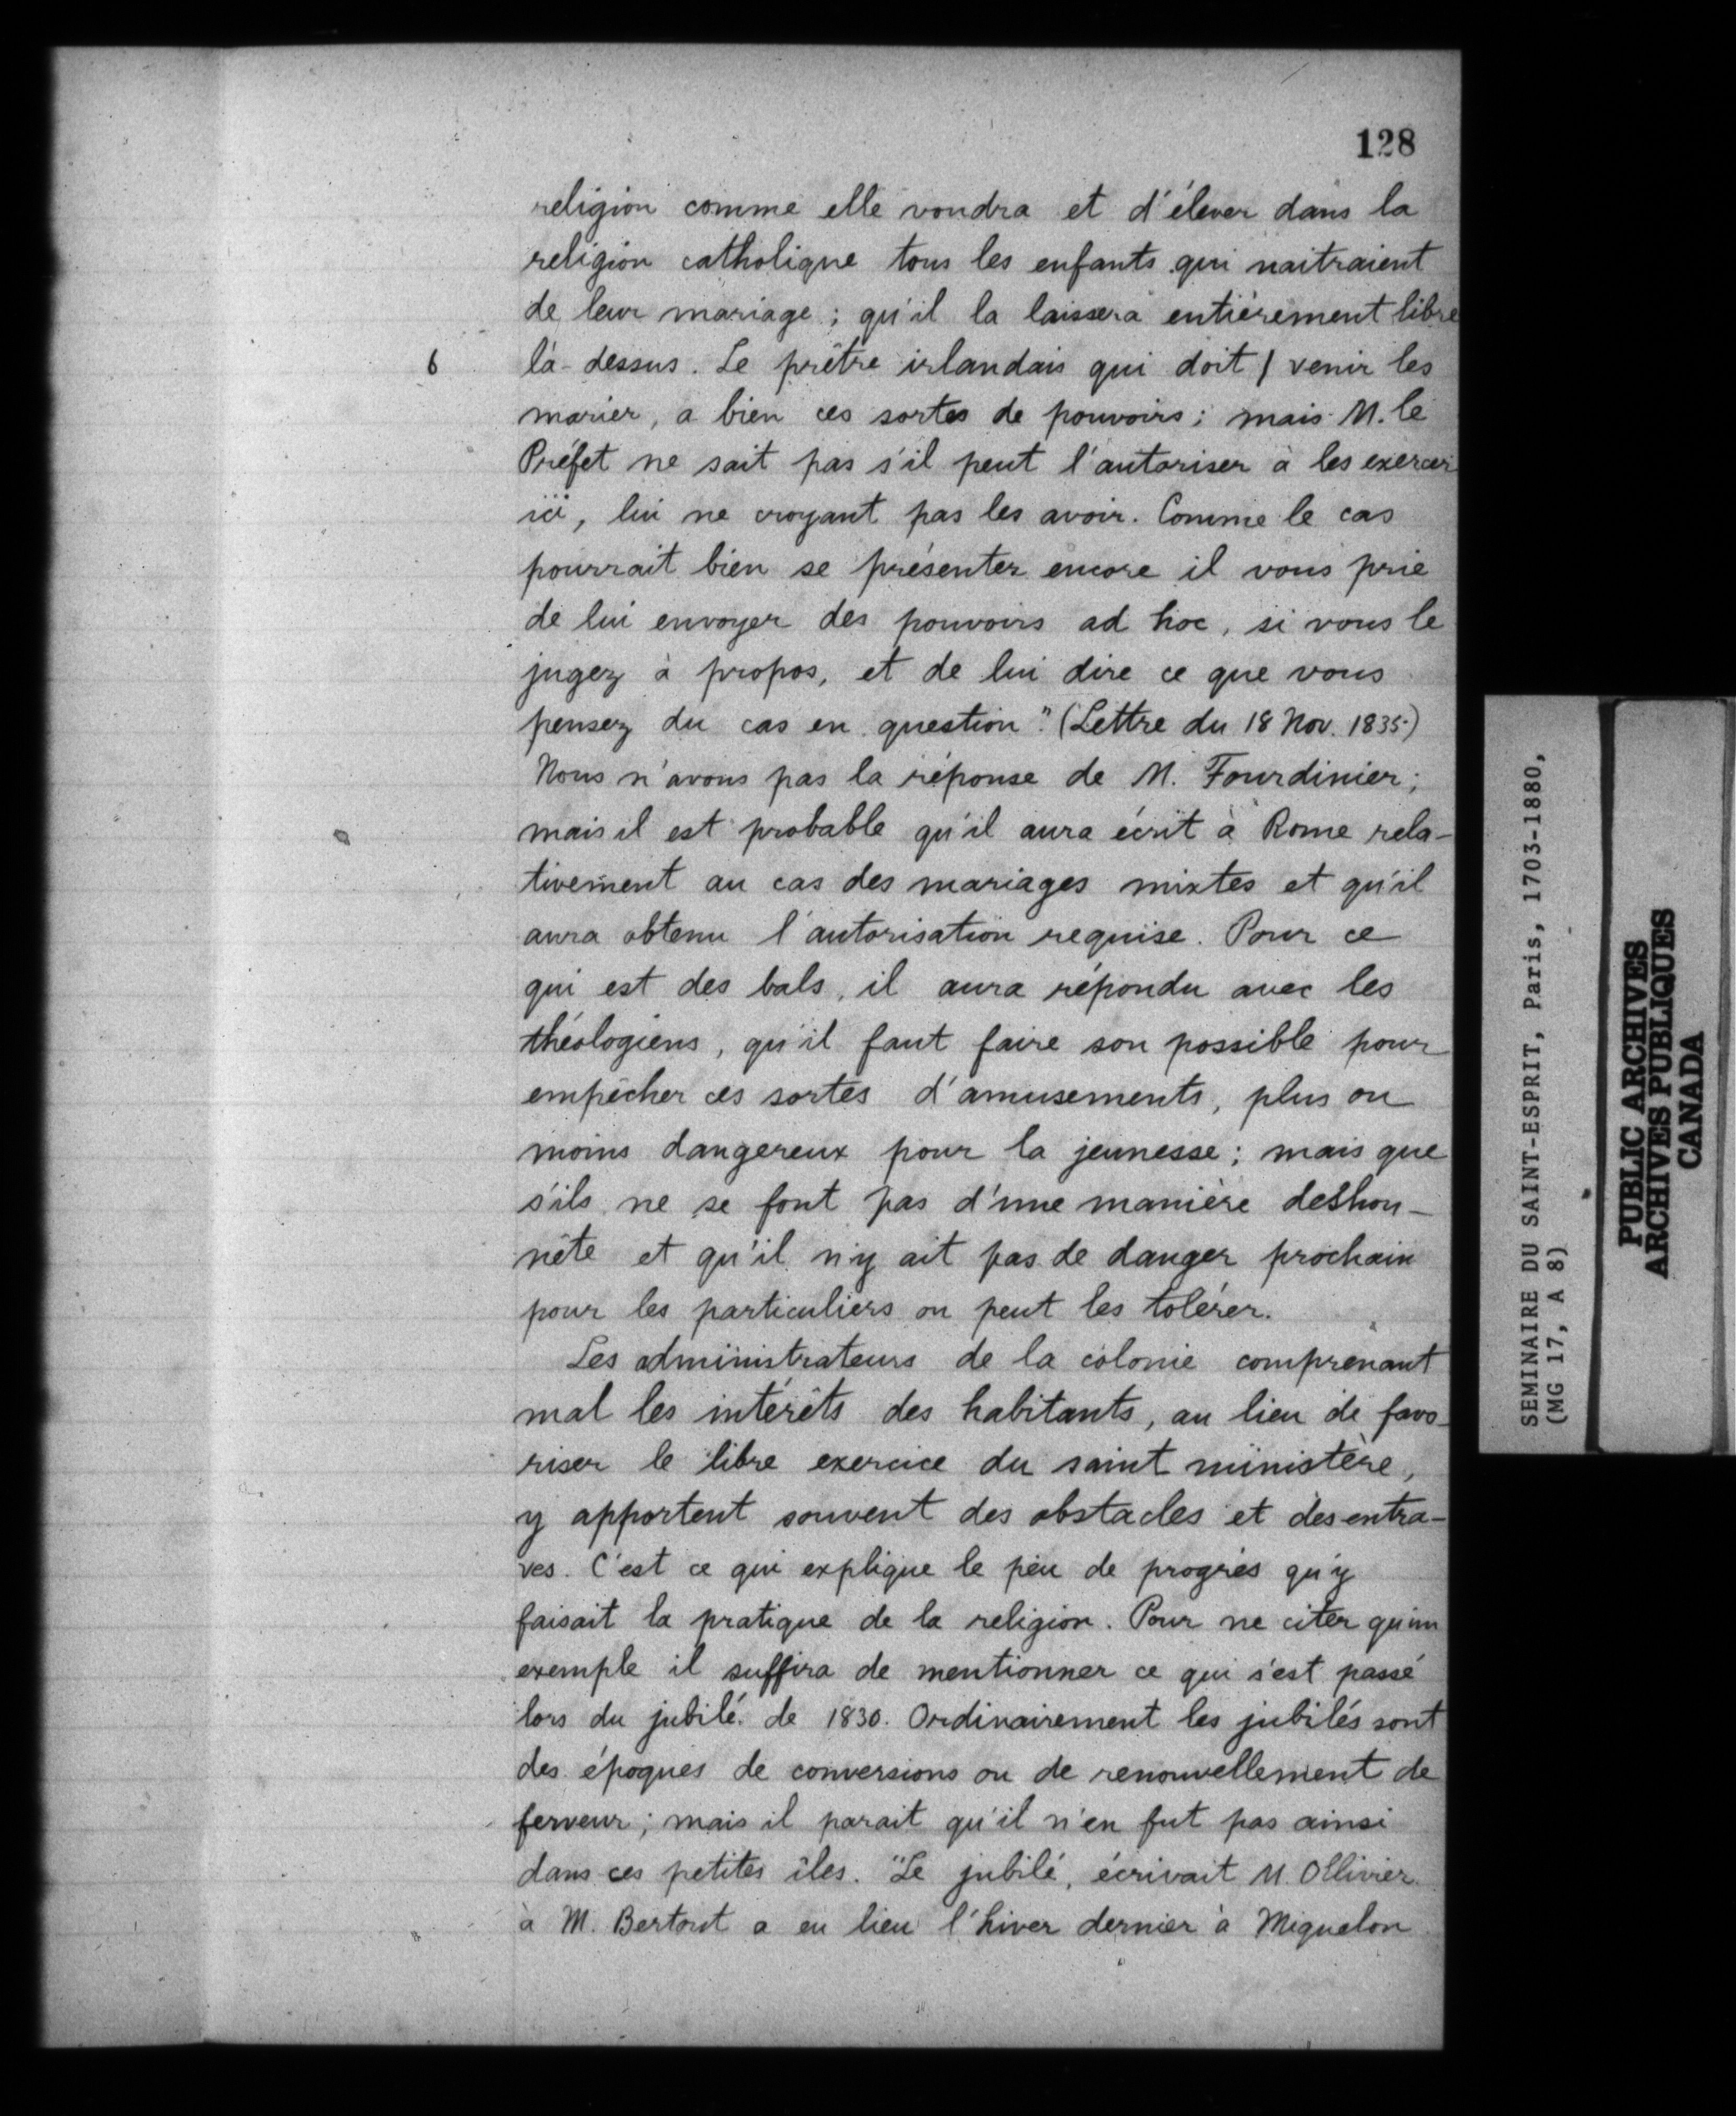 128
religion comme elle voudra et d'élever dans la
religion catholique tous les enfants qui naitraient
de leur mariage ; qu'il la laissera entièrement libre
6 là-dessus. Le prêtre irlandais qui doit / venir les
marier, a bien ces sortes de pouvoirs ; mais M. le
Préfet ne sait pas s'il peut l'autoriser à les exercer
ici, lui ne croyant pas les avoir. Comme le cas
pourrait bien se présenter encore il vous prie
de lui envoyer des pouvoirs ad hoc, si vous le
jugez à propos, et de lui dire ce que vous
pensez du cas en question." (Lettre du 18 Nov. 1835)
Nous n'avons pas la réponse de M. Fourdinier ;
mais il est probable qu'il aura écrit à Rome rela-
tivement au cas des mariages mixtes et qu'il
aura obtenu l'autorisation requise. Pour ce
qui est des bals, il aura répondu avec les
théologiens, qu'il faut faire son possible pour
empêcher ces sortes d'amusements, plus ou
moins dangereux pour la jeunesse ; mais que
s'ils ne se font pas d'une manière deshon-
nête et qu'il n'y ait pas de danger prochain
pour les particuliers on peut les tolérer.
Les administrateurs de la colonie comprenant
mal les intérêts des habitants, au lieu de favo-
riser le libre exercice du saint ministère,
y apportent souvent des obstacles et des entra-
ves. C'est ce qui explique le peu de progrès qu'y
faisait la pratique de la religion. Pour ne citer qu'un
exemple il suffira de mentionner ce qui s'est passé
lors du jubilé de 1830. Ordinairement les jubilés sont
des époques de conversions ou de renouvellement de
ferveur ; mais il parait qu'il n'en fut pas ainsi
dans ces petites îles. "Le jubilé, écrivait M. Ollivier
à M. Bertout a eu lieu l'hiver dernier à Miquelon
SEMINAIRE DU SAINT-ESPRIT, Paris, 1703-1880,
(MG 17, A 8)
PUBLIC ARCHIVES
ARCHIVES PUBLIQUES
CANADA